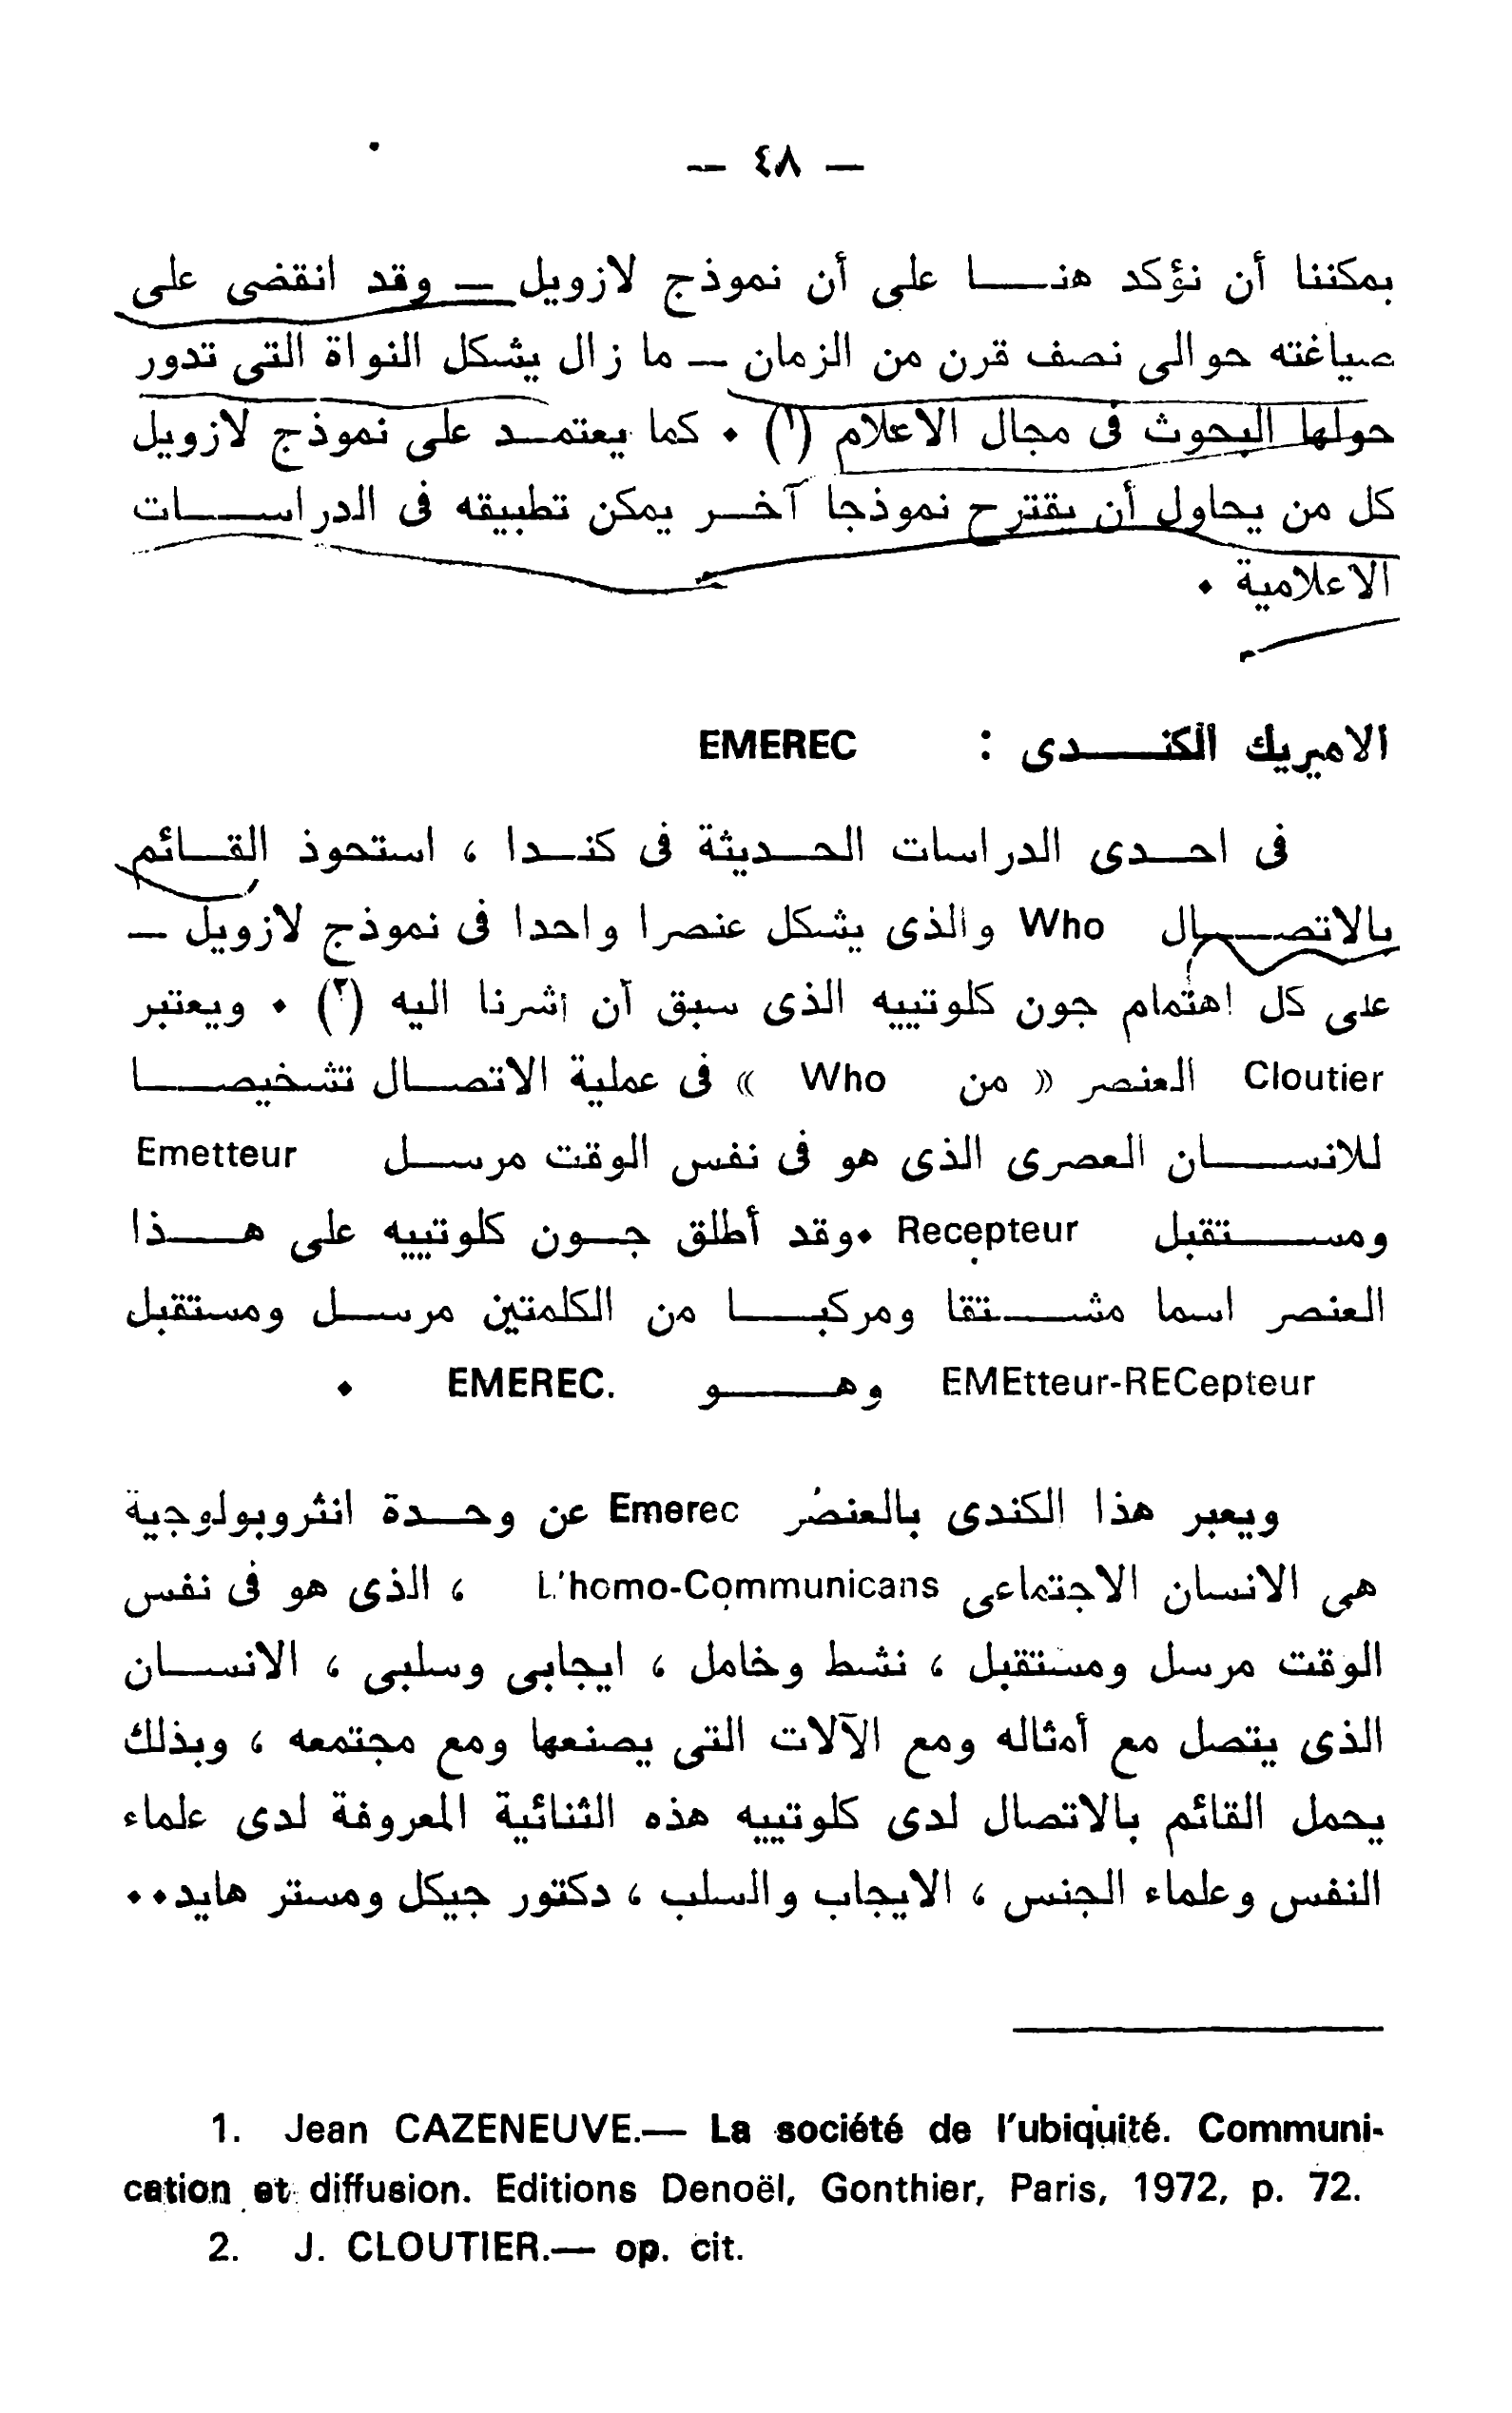 — ٤٨ —
يمكننا أن نؤكد هنا على أن نموذج لازويل — وقد انقضى على
صياغته حوالى نصف قرن من الزمان — ما زال يشكل النواة التى تدور
حولها البحوث فى مجال الاعلام (١) . كما يعتمد على نموذج لازويل
كل من يحاول أن يقترح نموذجا آخر يمكن تطبيقه فى الدراسات
الاعلامية .
الاميريك الكندى : EMEREC
فى احدى الدراسات الحديثة فى كندا ، استحوذ القائم
بالاتصال Who والذى يشكل عنصرا واحدا فى نموذج لازويل —
على كل اهتمام جون كلوتييه الذى سبق أن أشرنا اليه (٢) . ويعتبر
Cloutier العنصر « من Who » فى عملية الاتصال تشخيصا
للانسان العصرى الذى هو فى نفس الوقت مرسل Emetteur
ومستقبل Recepteur .وقد أطلق جون كلوتييه على هذا
العنصر اسما مشتقا ومركبا من الكلمتين مرسل ومستقبل
EMEtteur-RECepteur وهو EMEREC. .
ويعبر هذا الكندى بالعنصر Emerec عن وحدة انثروبولوجية
هى الانسان الاجتماعى L'homo-Communicans ، الذى هو فى نفس
الوقت مرسل ومستقبل ، نشط وخامل ، ايجابى وسلبى ، الانسان
الذى يتصل مع أمثاله ومع الآلات التى يصنعها ومع مجتمعه ، وبذلك
يحمل القائم بالاتصال لدى كلوتييه هذه الثنائية المعروفة لدى علماء
النفس وعلماء الجنس ، الايجاب والسلب ، دكتور جيكل ومستر هايد..
1. Jean CAZENEUVE.— La société de l'ubiquité. Communi-
cation et diffusion. Editions Denoël, Gonthier, Paris, 1972, p. 72.
2. J. CLOUTIER.— op. cit.